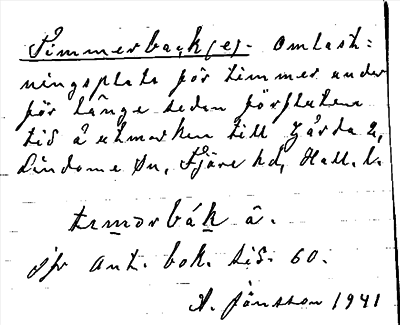 Timmerback(e). Omlast=
ningsplats för timmer under
för länge sedan förfluten
tid å utmarken till Gårda 2,
Lindome sn, Fjäre hd, Hall. l.
tımərbák â.
Jfr Ant. bok. sid. 60.
A. Jönsson 1941